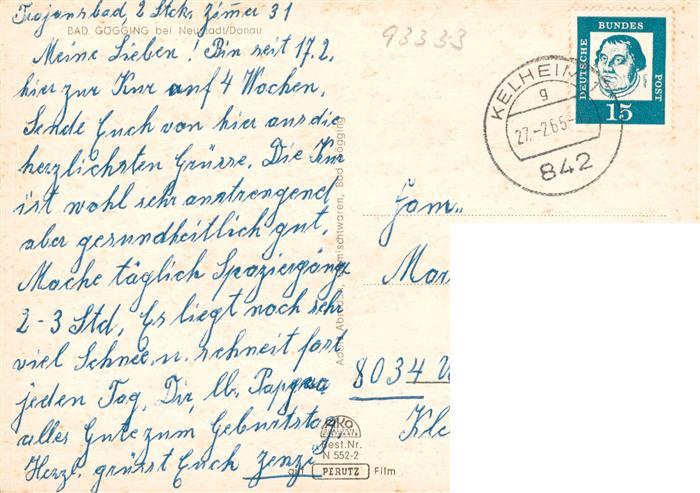 Trajansbad, 2 Stck. Zimmer 31
BAD GÖGGING bei Neustadt/Donau
Meine Lieben! Bin seit 17.2.
hier zur Kur auf 4 Wochen,
Sende Euch von hier aus die
herzlichsten Grüsse. Die Kur
ist wohl sehr anstrengend
aber gesundheitlich gut.
Mache täglich Spaziergäng
2-3 Std, Es liegt noch sehr
viel Schnee u. schneit fast
jeden Tag, Dir, lb.
alles Gute zum Geburtstag
Herzl. grüsst Euch
93333
DEUTSCHE BUNDES POST
15
KELHEIM
g
27.-2.65-
842
Fam.
8034
Bad Gögging
Best.Nr.
N 552-2
auf PERUTZ Film